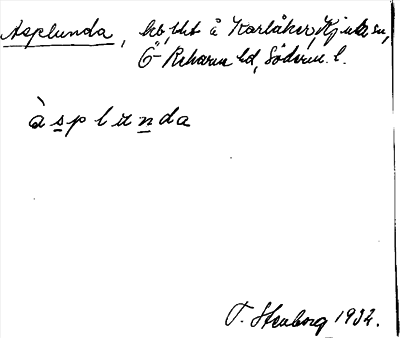 Asplunda, hö, lht å Karlåker, Kjula sn,
Ö-Rekarne hd, Söderm. l.
àsplunda
T. Stenborg 1932.